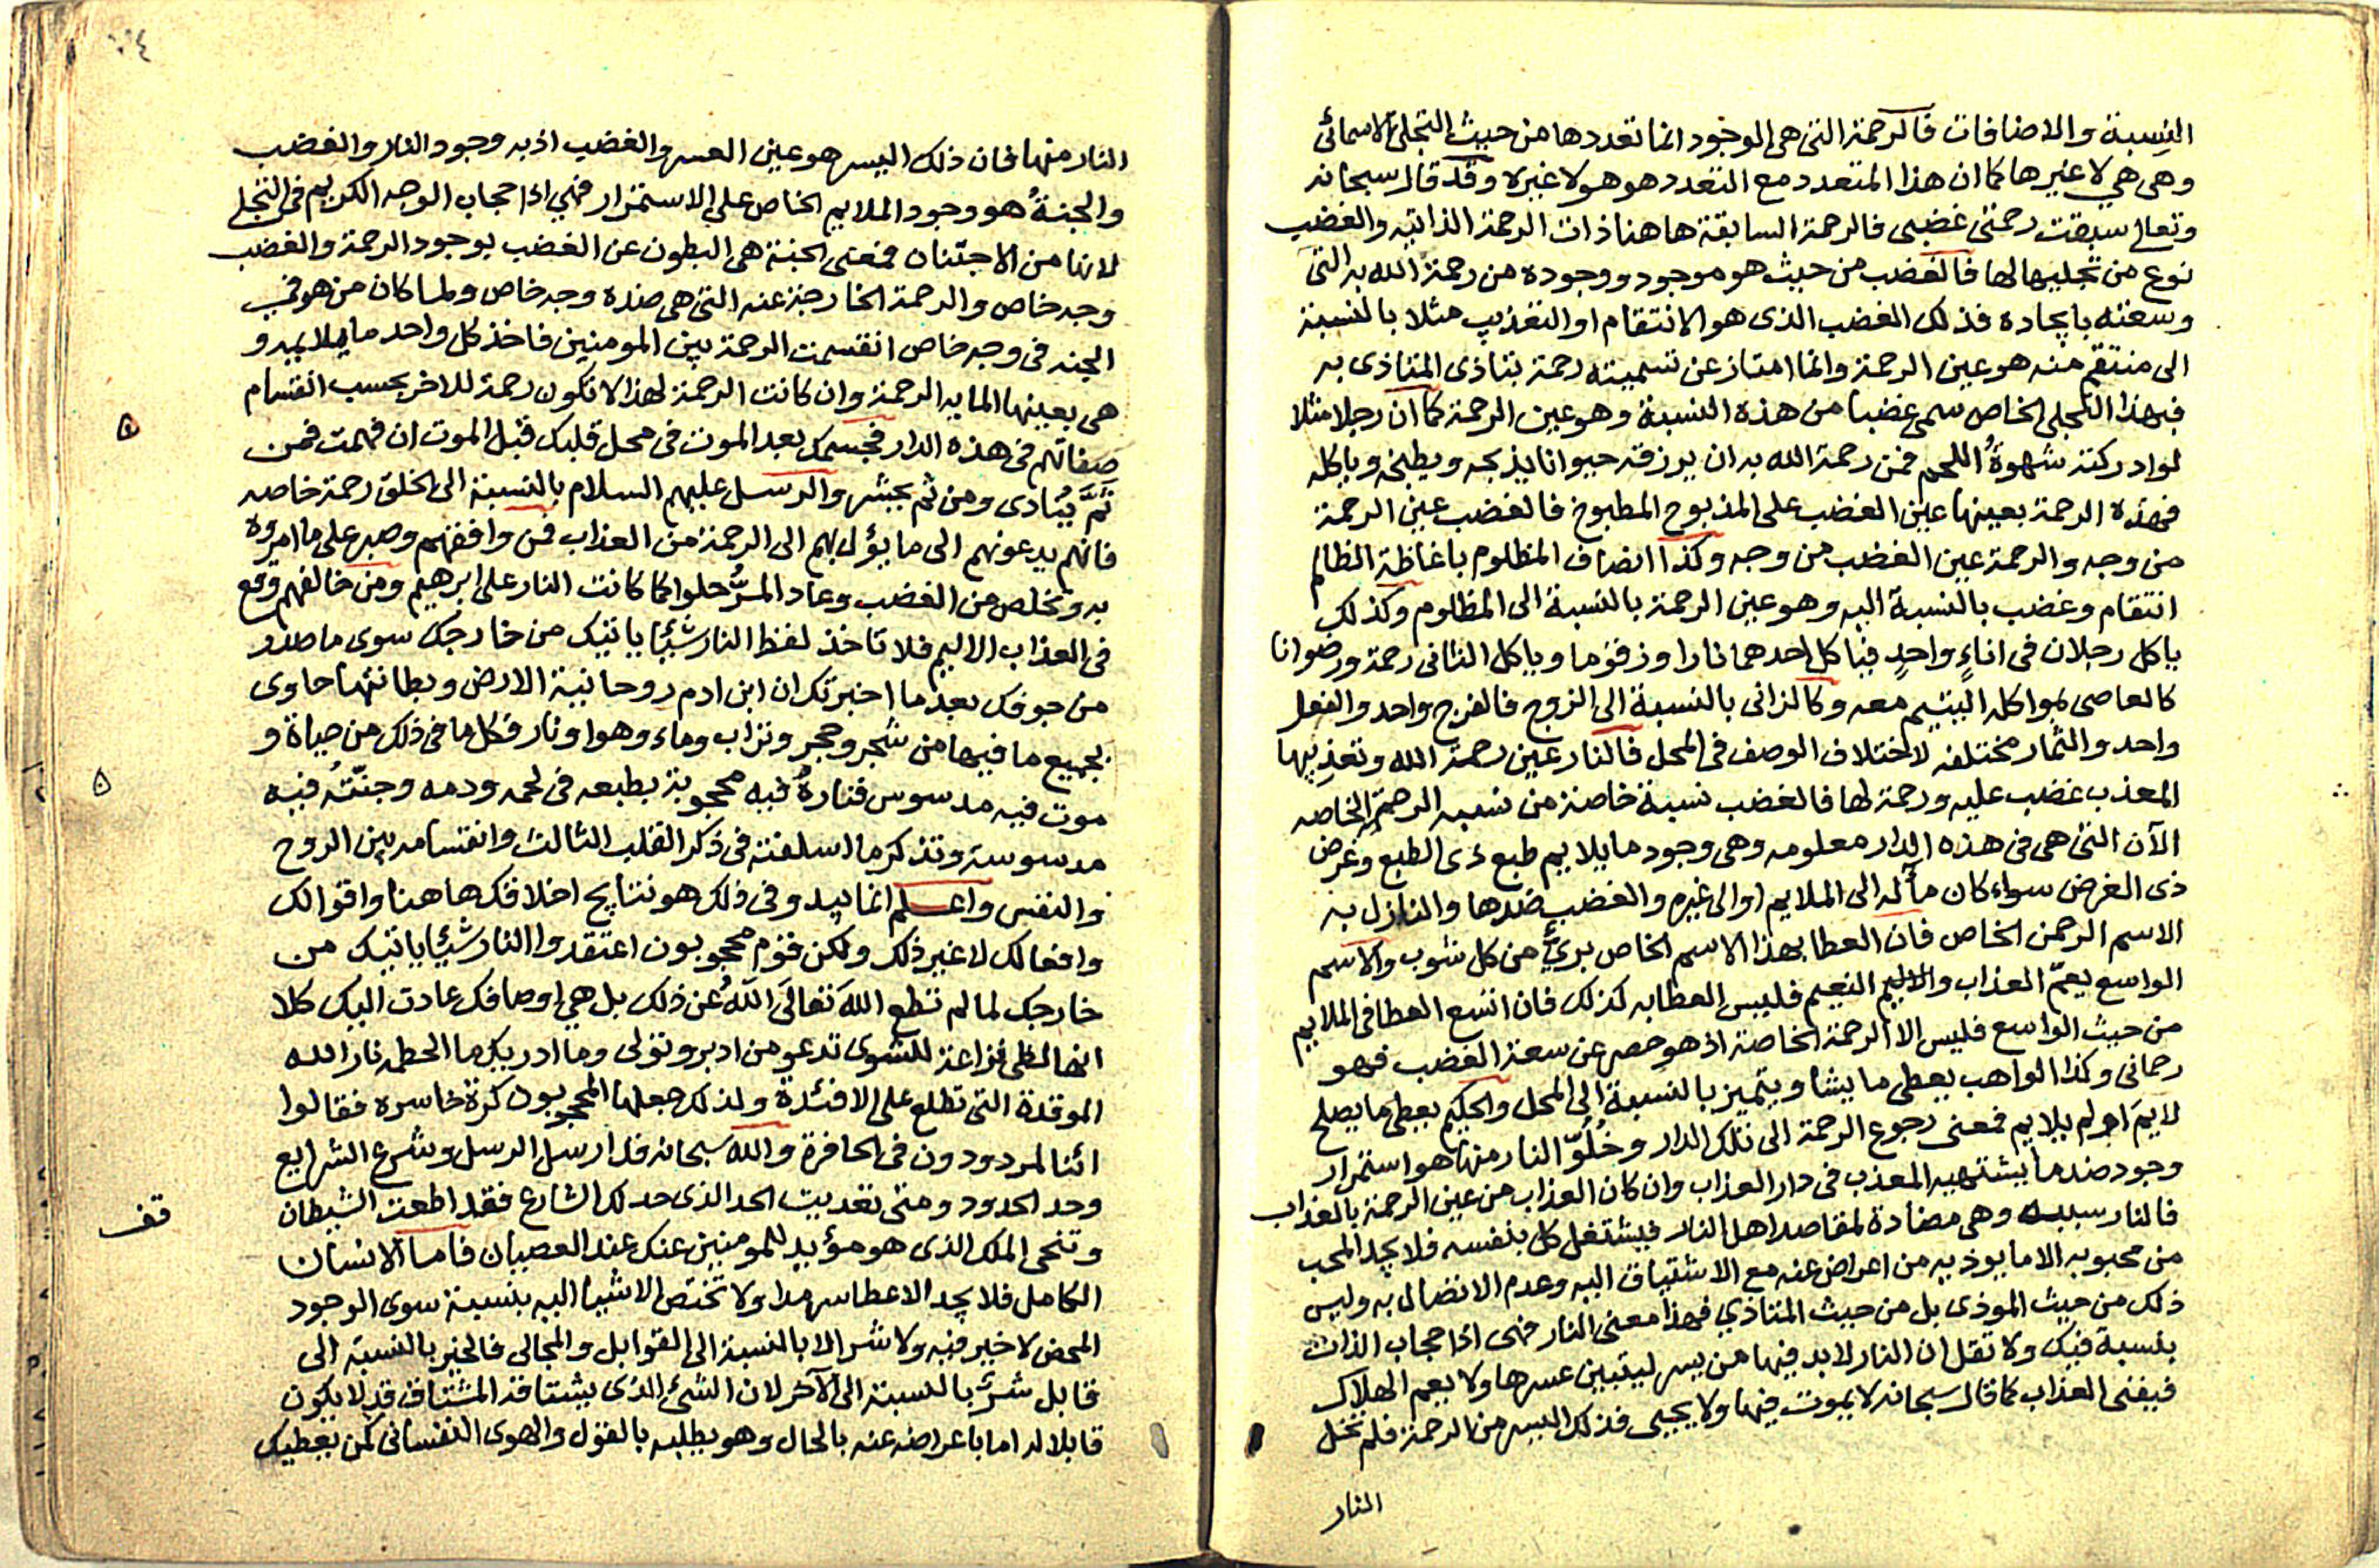 النسبة والاضافات فالرحمة التى هى الوجود انما تعددها من حيث التجلى الاسمائى
وهى هي لا غيرها كما ان هذا المتعدد مع التعدد هو هو لا غيره وقد قال سبحانه
وتعالى سبقت رحمتى غضبى فالرحمة السابقة ها هنا ذات الرحمة الذاتيه والغضب
نوع من تجليها لها فالغضب من حيث هو موجود ووجوده من رحمة الله به التى
وسعته بايجاده فذلك الغضب الذى هو الانتقام او التعذيب مثلا بالنسبة
الى منتقم منه هو عين الرحمة وانما امتاز عن تسميته رحمة بتاذى المتاذى به
فبهذا التجلى الخاص سمى غضبا من هذه النسبة وهو عين الرحمة كما ان رجلا مثلا
لو ادركته شهوةُ اللحم فمن رحمة الله به ان يرزقه حيوانا يذبحه ويطبخه وياكله
فهذه الرحمة بعينها عين الغضب على المذبوح المطبوخ فالغضب عين الرحمة
من وجه والرحمة عين الغضب من وجه وكذا انصاف المظلوم باغاظة الظالم
انتقام وغضب بالنسبة اليه وهو عين الرحمة بالنسبة الى المظلوم وكذلك
ياكل رجلان فى اناءٍ واحدٍ فياكل احدهما نارا وزقوما وياكل الثانى رحمة ورضوانا
كالعاصى بمواكله اليتيم معه وكالزانى بالنسبة الى الزوج فالفرج واحد والفعل
واحد والثمار مختلفه لاختلاف الوصف فى المحل فالنار عين رحمة الله وتعذيبها
المعذب غضب عليه ورحمة لها فالغضب نسبة خاصة من نسبه الرحمة الخاصه
الآن التى هى فى هذه الدار معلومه وهى وجود ما يلايم طبع ذى الطبع وغرض
ذى الغرض سواء كان مآله الى الملايم او الى غيره والغضب ضدها والنازل به
الاسم الرحمن الخاص فان العطا بهذا الاسم الخاص برئ من كل شوب والاسم
الواسع يعمّ العذاب والاليم النعيم فليس العطا به كذلك فان اتسع العطا فى الملايم
من حيث الواسع فليس الا الرحمة الخاصة اذ هو حصر عن سعة الغضب فهو
رحمانى وكذا الواهب يعطى ما يشا ويتميز بالنسبة الى المحل والحكيم يعطى ما يصلح
لايم او لم يلايم فمعنى رجوع الرحمة الى تلك الدار وخُلُوّ النار منها هو استمرار
وجود ضد ما يشتهيه المعذب فى دار العذاب وان كان العذاب من عين الرحمة بالعذاب
فالنار سببه وهى مضادة لمقاصد اهل النار فيشتغل كل بنفسه فلا يجد المحب
من محبوبه الا ما يوذيه من اعراض عنه مع الاشتياق اليه وعدم الاتصال به وليس
ذلك من حيث الموذى بل من حيث المتاذي فهذا معنى النار فهى اذا حجاب الذات
بنسبة فيك ولا تقل ان النار لا بد فيها من يسر ليتبين عسرها ولا يعم الهلاك
فيفنى العذاب كما قال سبحانه لا يموت فيها ولا يحيى فذلك اليسر من الرحمة فلم تخل
النار
النار منها فان ذلك اليسر هو عين العسر والغضب اذ به وجود النار والغضب
والجنةُ هو وجود الملايم الخاص على الاستمرار فهي اذا حجاب الوجه الكريم فى التجلى
لانها من الاجتنان فمعنى الجنة هى البطون عن الغضب بوجود الرحمة والغضب
وجه خاص والرحمة الخارجة عنه التى هى ضده وجه خاص ولما كان من هو فى
الجنه فى وجه خاص انقسمت الرحمة بين المومنين فاخذ كل واحد ما يلايمه و
هى بعينها المابه الرحمة وان كانت الرحمة لهذا لا تكون رحمة للاخر بحسب انقسام
صفاتهم فى هذه الدار فجسمك بعد الموت فى محل قلبك قبل الموت ان فهمت فمن
ثَمَّ يُنادى ومن ثم يحشر والرسل عليهم السلام بالنسبة الى الخلق رحمة خاصه
فانهم يدعونهم الى ما يؤل بهم الى الرحمة من العذاب فمن وافقهم وصبر على ما امروه
به وتخلص من الغضب وعاد المرُّ حلوا كما كانت النار على ابرهيم ومن خالفهم وقع
فى العذاب الاليم فلا تاخذ لفظ النار شيئا ياتيك من خارجك سوى ما صدر
من جوفك بعد ما اخبرتك ان ابن ادم روحانية الارض وبطانتها حاوى
بجميع ما فيها من شجر وحجر وتراب وماء وهوا ونار فكل ما فى ذلك من حياة و
موت فيه مدسوس فنارهُ فيه محجوبة بطبعه فى لحمه ودمه وجنّتُه فيه
مدسوسة وتذكر ما اسلفته فى ذكر القلب الثالث وانقسامه بين الروح
والنفس واعلم انما يبدو فى ذلك هو نتايج اخلاقك ها هنا واقوالك
وافعالك لا غير ذلك ولكن قوم محجوبون اعتقدوا النار شيئا ياتيك من
خارجك لما لم تطع الله تعالى اللهُ عن ذلك بل هي اوصافك عادت اليك كلا
انها لظى نزاعة للشوى تدعو من ادبر وتولى وما ادريك ما الحطمه نار الله
الموقدة التى تطلع على الافئدة ولذلك جعلها المحجوبون كرة خاسره فقالوا
ائنا لمردودون فى الحافرة والله سبحانه قد ارسل الرسل وشرع الشرايع
وحد الحدود ومتى تعديت الحد الذى حد لك الشارع فقد اطعت الشيطان
قف
وتنحى الملك الذى هو مؤيد للمومنين عنك عند العصيان فاما الانسان
الكامل فلا يجد الا عطا سرمدا ولا تختص الاشيا اليه بنسبة سوى الوجود
المحض لا خير فيه ولا شر الا بالنسبة الى القوابل والمجالى فالخير بالنسبة الى
قابل شرٌّ بالنسبة الى الآخر لان الشئ الذى يشتاقه المشتاق قد لا يكون
قابلا له اما باعراضه عنه بالحال وهو يطلبه بالقول والهوى النفسانى كمن يعطيك